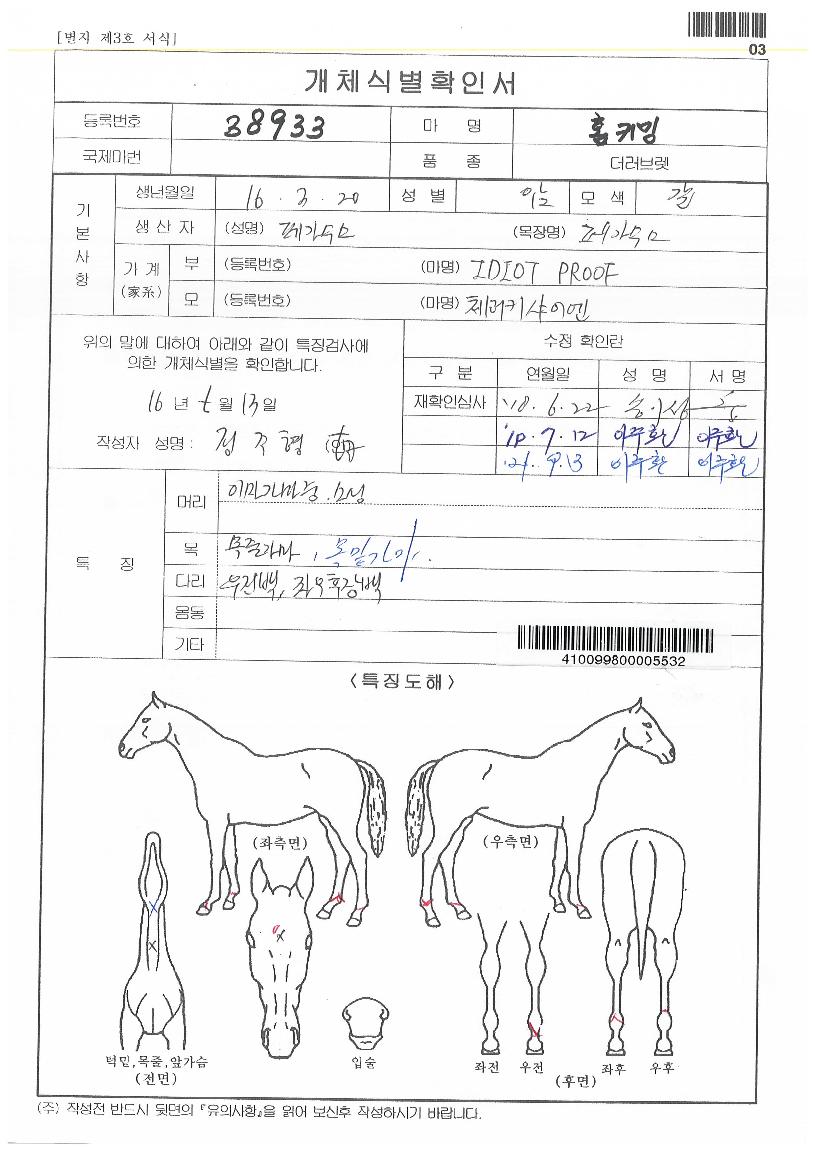 [별지 제3호 서식]
03
개체식별확인서
등록번호 38933 마 명 홈커밍
국제마번 품 종 더러브렛
기본사항
생년월일 16 . 3 . 20 성 별 암 모 색 갈
생 산 자 (성명) 페가수스 (목장명) 페가수스
가 계 (家系) 부 (등록번호) (마명) IDIOT PROOF
모 (등록번호) (마명) 체러키샤이엔
위의 말에 대하여 아래와 같이 특징검사에
의한 개체식별을 확인합니다.
16 년 월 13 일
작성자 성명 :
수정 확인란
구 분 연월일 성 명 서 명
재확인심사 '18. 6. 22
7. 12 이주환 이주환
'21. 9. 13 이주환 이주환
특 징
머리
목 목줄가마, 목밑가마.
다리 우전백, 좌우후장백
몸통
기타
410099800005532
<특징도해>
(좌측면)
(우측면)
턱밑,목줄,앞가슴
(전면)
입술
좌전 우전
좌후 우후
(후면)
(주) 작성전 반드시 뒷면의 『유의사항』을 읽어 보신후 작성하시기 바랍니다.